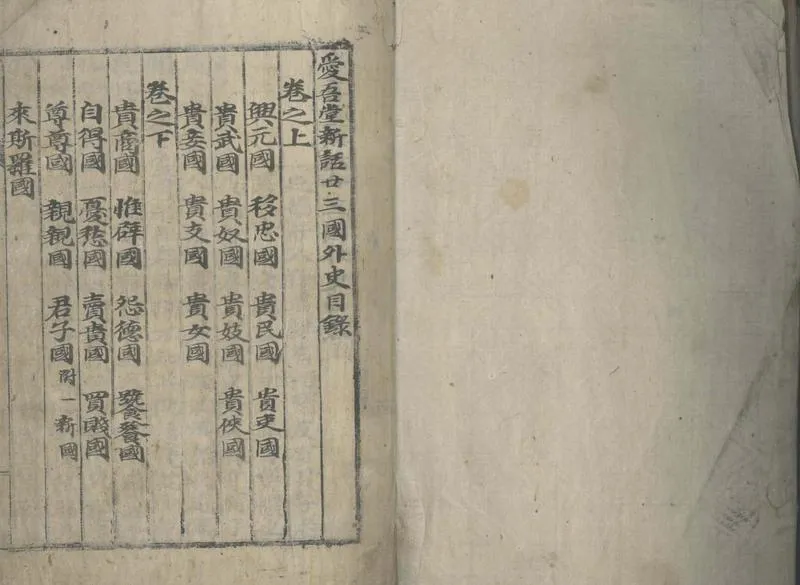 愛吾堂新話廿三國外史目錄
卷之上
興元國 移忠國 貴民國 貴吏國
貴武國 貴奴國 貴妓國 貴俠國
貴妾國 貴支國 貴女國
卷之下
貴商國 惟辟國 怨德國 饕餮國
自得國 憂愁國 賣貴國 買賤國
尊尊國 親親國 君子國 附一新國
來斯羅國